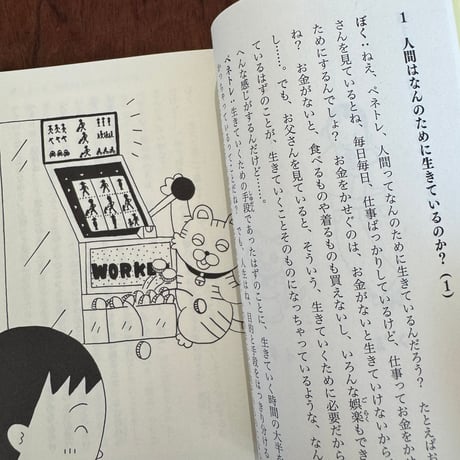 1 人間はなんのために生きているのか?(1)
ぼく:ねえ、ペネトレ、人間ってなんのために生きているんだろう? たとえばお
さんを見ているとね、毎日毎日、仕事ばっかりしているけど、仕事ってお金をかせ
ためにするんでしょ? お金をかせぐのは、お金がないと生きていけないから
ね? お金がないと、食べるものや着るものも買えないし、いろんな娯楽もでき
し……。でも、お父さんを見ていると、そういう、生きていくために必要だから
ているはずのことが、生きていくことそのものになっちゃっているような、なん
へんな感じがするんだけど……。
ペネトレ:生きていくための手段であったはずのことに、生きていく時間の大半を
でも、人生はね、目的と手段をはっきり分ける
WORKL